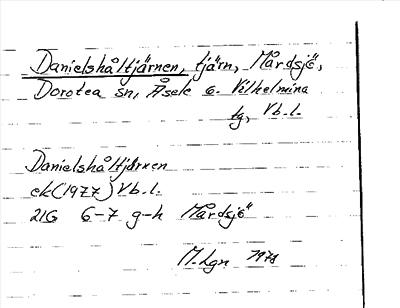 Danielshåltjärnen, tjärn, Mårdsjö,
Dorotea sn, Åsele o. Vilhelmina
tg, Vb.l.
Danielshåltjärnen
ek (1977) Vb.l.
21G 6-7 g-h Mårdsjö
M. Lgn 1978